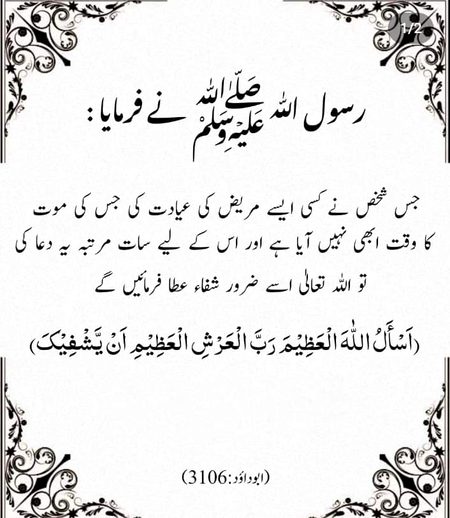 1/2
رسول اللہ صَلَّى اللّٰهُ عَلَيْهِ وَسَلَّمْ نے فرمایا:
جس شخص نے کسی ایسے مریض کی عیادت کی جس کی موت
کا وقت ابھی نہیں آیا ہے اور اس کے لیے سات مرتبہ یہ دعا کی
تو اللہ تعالیٰ اسے ضرور شفاء عطا فرمائیں گے
(اَسْأَلُ اللّٰهَ الْعَظِيْمَ رَبَّ الْعَرْشِ الْعَظِيْمِ اَنْ يَّشْفِيْكَ)
(ابوداؤد:3106)